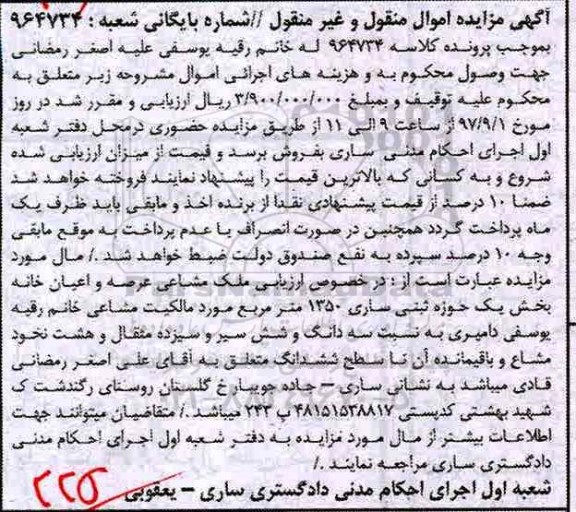 آگهی مزایده اموال منقول و غیر منقول //شماره بایگانی شعبه : ۹۶۴۷۳۴
بموجب پرونده کلاسه ۹۶۴۷۳۴ له خانم رقیه یوسفی علیه اصغر رمضانی
جهت وصول محکوم به و هزینه های اجرائی اموال مشروحه زیر متعلق به
محکوم علیه توقیف و بمبلغ ۳/۹۰۰/۰۰۰/۰۰۰ ریال ارزیابی و مقرر شد در روز
مورخ ۹۷/۹/۱ از ساعت ۹ الی ۱۱ از طریق مزایده حضوری درمحل دفتر شعبه
اول اجرای احکام مدنی ساری بفروش برسد و قیمت از میزان ارزیابی شده
شروع و به کسانی که بالاترین قیمت را پیشنهاد نمایند فروخته خواهد شد
ضمنا ۱۰ درصد از قیمت پیشنهادی نقدا از برنده اخذ و مابقی باید ظرف یک
ماه پرداخت گردد همچنین در صورت انصراف یا عدم پرداخت به موقع مابقی
وجه ۱۰ درصد سپرده به نفع صندوق دولت ضبط خواهد شد ./ مال مورد
مزایده عبارت است از : در خصوص ارزیابی ملک مشاعی عرصه و اعیان خانه
بخش یک حوزه ثبتی ساری ۱۳۵۰ متر مربع مورد مالکیت مشاعی خانم رقیه
یوسفی دامیری به نسبت سه دانگ و شش سیر و سیزده مثقال و هشت نخود
مشاع و باقیمانده آن تا سطح ششدانگ متعلق به آقای علی اصغر رمضانی
قادی میباشد به نشانی ساری – جاده جویبار خ گلستان روستای رگندشت ک
شهید بهشتی کدپستی ۴۸۱۵۱۵۳۸۸۱۷ پ ۲۴۳ میباشد./ متقاضیان میتوانند جهت
اطلاعات بیشتر از مال مورد مزایده به دفتر شعبه اول اجرای احکام مدنی
دادگستری ساری مراجعه نمایند ./
شعبه اول اجرای احکام مدنی دادگستری ساری – یعقوبی
۲۲۵